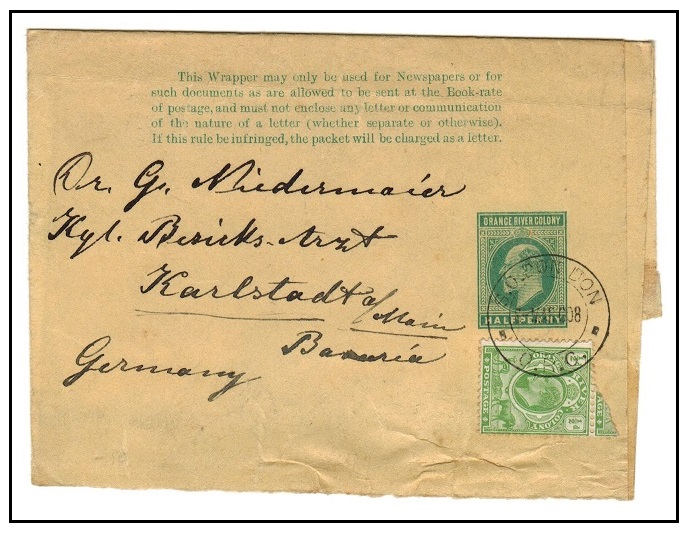 This Wrapper may only be used for Newspapers or for
such documents as are allowed to be sent at the Book-rate
of postage, and must not enclose any letter or communication
of the nature of a letter (whether separate or otherwise).
If this rule be infringed, the packet will be charged as a letter.
Dr. G. Niedermaier
Kgl. Bezirks-Arzt
Karlstadt a/Main
Bavaria
Germany
ORANGE RIVER COLONY
HALFPENNY
DON
08
POSTAGE
COLONY